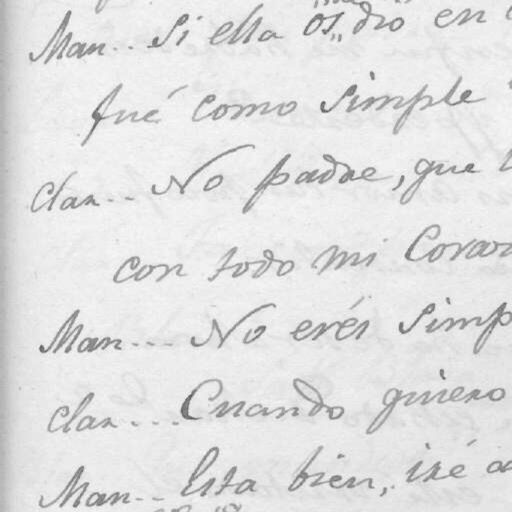 Man.. Si ella os dió en
fué como simple
clar.. No padre, que
con todo mi Coraz
Man... No erés simp
clar... Cuando quiero
Man.. Esta bien, iré a